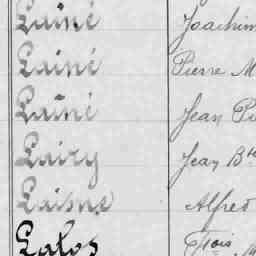 Lainé Joachim
Lainé Pierre M
Lainé Jean Pi
Lairy Jean Bte
Laisne Alfred
Lalos Fçois M